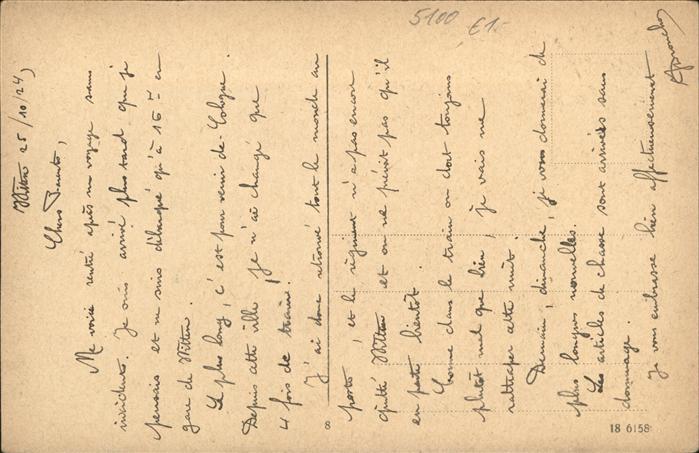 Witten 25/10/24,
Chers Parents,
Me voici rentré après un voyage sans
incidents. Je suis arrivé plus tard que je
pensais et ne suis débarqué qu'à 16 h en
gare de Witten.
Le plus long, c'est pour venir de Cologne.
Depuis cette ville je n'ai changé que
4 fois de train!
J'ai donc retrouvé tout le monde au
porto, et le régiment n'a pas encore
quitté Witten et on ne prévoit pas qu'il
en parte bientôt.
Comme dans le train on dort toujours
plutôt mal que bien, je vais me
rattraper cette nuit.
Demain, dimanche, je vous donnerai de
plus longues nouvelles.
Les articles de chasse sont arrivés sans
dommage.
Je vous embrasse bien affectueusement
5100
€1-
8
18 6158